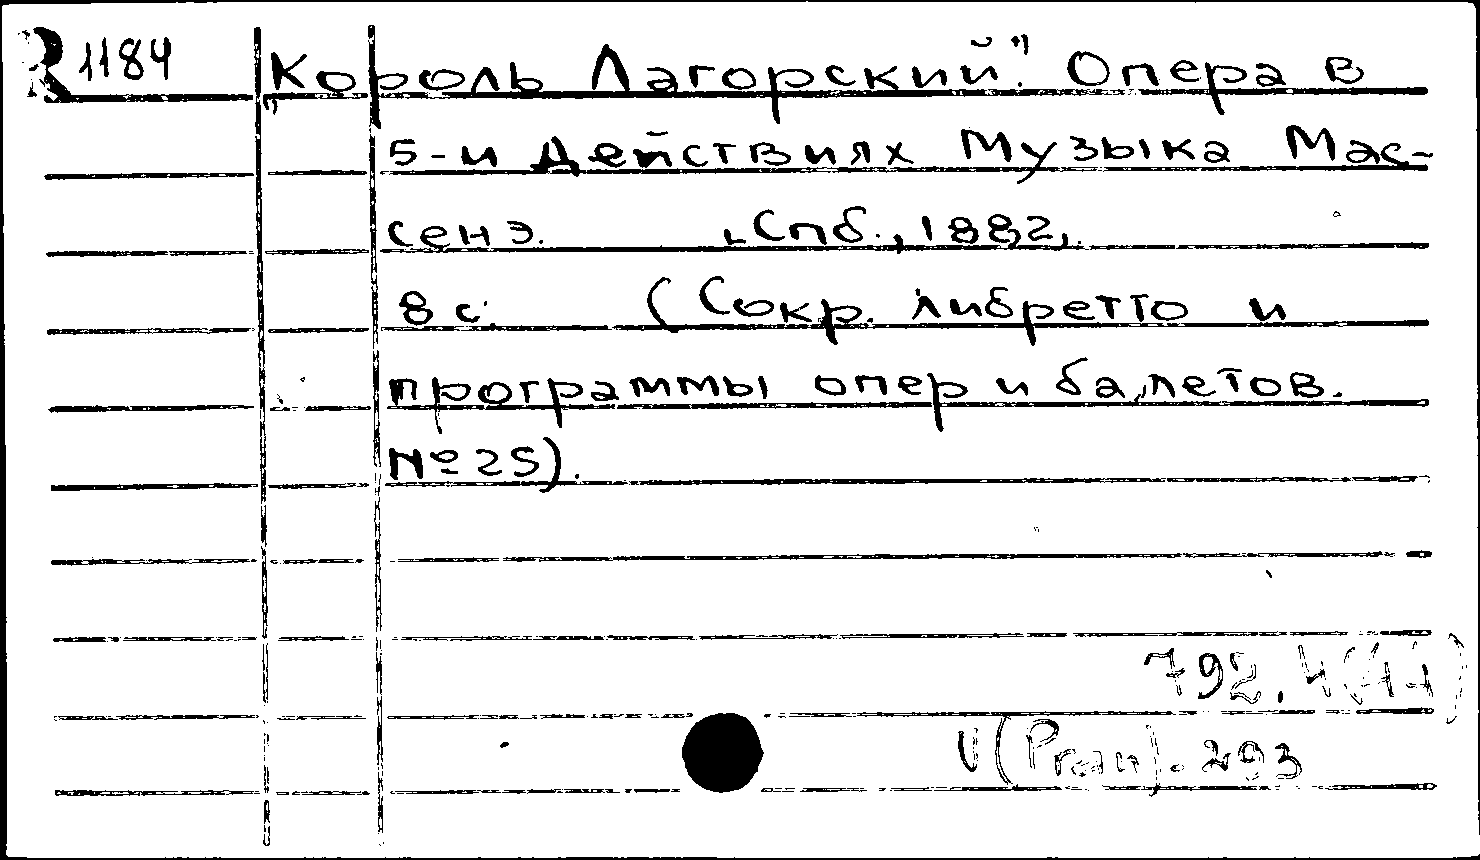 R 1184 „Король Лагорский". Опера в
5-и действиях Музыка Мас-
сенэ. Спб., 1882,
8 с. (Сокр. либретто и
программы опер и балетов.
№ 25).
792.4(44)
V(Pran).293